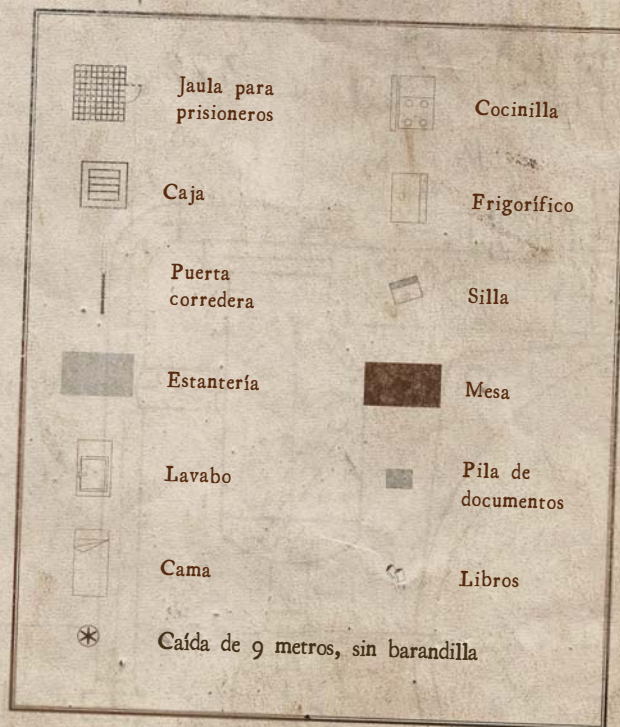 Jaula para
prisioneros
Caja
Puerta
corredera
Estantería
Lavabo
Cama
Cocinilla
Frigorífico
Silla
Mesa
Pila de
documentos
Libros
Caída de 9 metros, sin barandilla